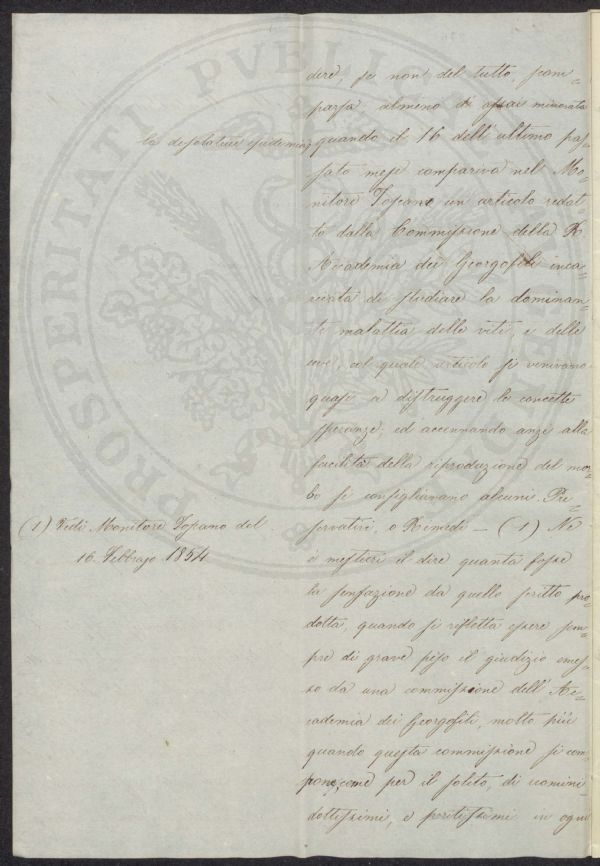 dire, se non del tutto scom=
parsa almeno di assai minorata
la desolatrice epidemia, quando il 16 dell'ultimo pas=
sato mese compariva nel Mo=
nitore Toscano un articolo redat=
to dalla Commissione della R.
Accademia dei Georgofili inca=
ricata di studiare la dominan=
te malattia delle viti, e delle
uve, col quale articolo si venivano
quasi a distruggere le concette
speranze, ed accennando anzi alla
facilità della riproduzione del mor=
bo si consigliavano alcuni Pre=
servativi, o Rimedi — (1) Nè
(1) Vedi Monitore Toscano del
16. Febbrajo 1854
è mestieri il dire quanta fosse
la sensazione da quello scritto pro=
dotta, quando si rifletta essere sem=
pre di grave peso il giudizio emes=
so da una commissione dell'Ac=
cademia dei Georgofili, molto più
quando questa commissione si com=
pone, come per il solito, di uomini
dottissimi, e peritissimi in ogni
PROSPERITATI PVBLICAE AVGENDAE